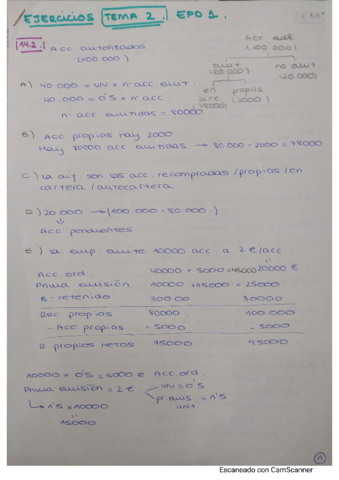 EJERCICIOS TEMA 2. EPD 1.
14.2. Acc autorizadas
(100.000)
Acc aut
(100.000)
emit (80.000)
no emit (20.000)
en circ (78000)
propias (2000)
A) 40.000 = VN x nº acc emit.
40.000 = 0'5 x nº acc.
nº acc emitidas = 80000
B) Acc propias hay 2000
Hay 80000 acc emitidas → 80.000 - 2000 = 78000
C) la aut. son las acc. recompradas / propias / en
cartera / autocartera.
D) 20.000 → (100.000 - 80.000)
Acc pendientes
E) la emp. emite 10000 acc a 2 €/acc.
20000 €
Acc ord. 40000 + 5000 = 45000
Prima emisión 10000 + 15000 = 25000
B- retenido 30000 30000
Rec propios 80000 100.000
- Acc propias - 5000 - 5000
R propios netos 75000 95000
10000 x 0'5 = 5000 € Acc ord.
Prima emisión = 2 €
VN = 0'5
pr emis = 1'5
unit.
1'5 x 10000
15000
1
Escaneado con CamScanner